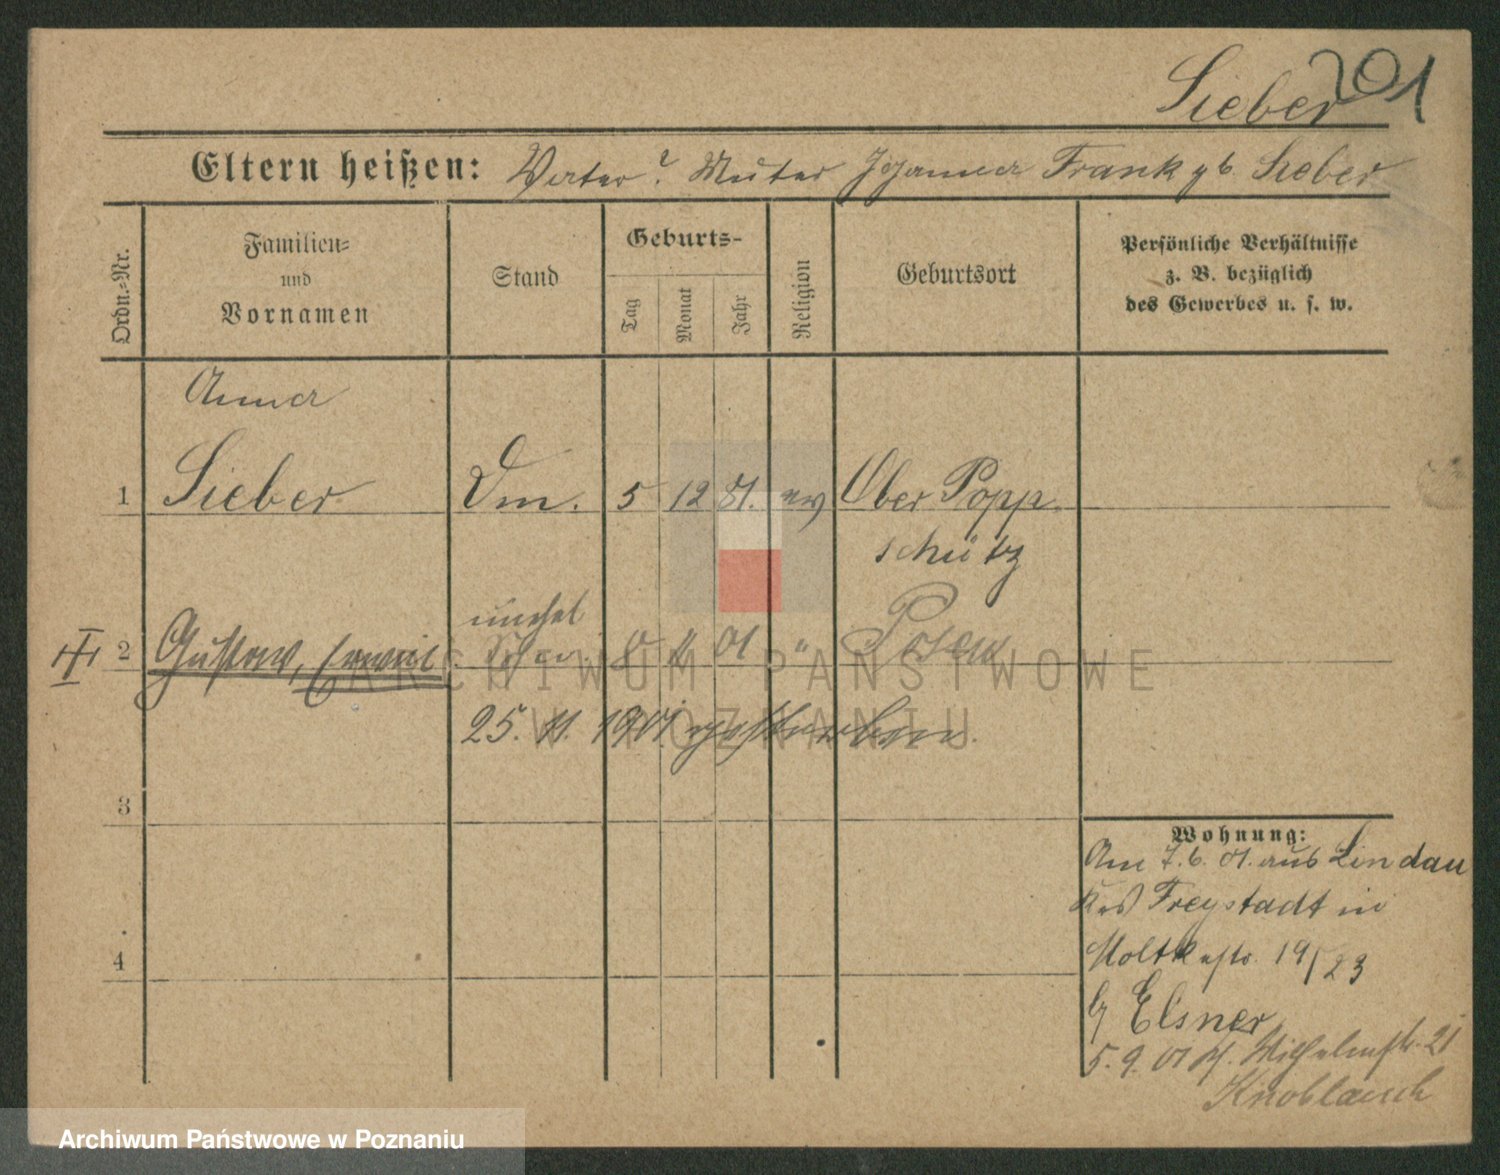 Sieber 201
Eltern heißen: Vater ? Mutter Johanna Frank gb. Sieber
Ordn.-Nr.
Familien-
und
Vornamen
Stand
Geburts-
Tag
Monat
Jahr
Religion
Geburtsort
Persönliche Verhältnisse
z. B. bezüglich
des Gewerbes u. s. w.
Anna
1 Sieber Dm. 5 12 81. ev Ober Popp
schütz
unehel
2 Gustav, Sohn 11 01 " Posen
25. 11. 1901 gestorben.
3
4
Wohnung:
Am 7. 6. 01. aus Lindau
Krs Freystadt in
Moltkestr. 19/23
b/ Elsner
5. 9. 01 Wilhelmstr. 21
Knoblauch
ARCHIWUM PAŃSTWOWE
W POZNANIU
Archiwum Państwowe w Poznaniu